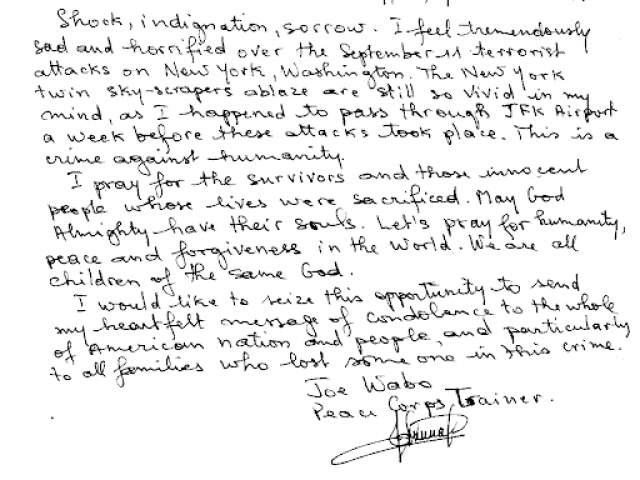 Shock, indignation, sorrow. I feel tremendously
sad and horrified over the September 11 terrorist
attacks on New York, Washington. The New York
twin sky-scrapers ablaze are still so vivid in my
mind, as I happened to pass through JFK Airport
a week before these attacks took place. This is a
crime against humanity.
I pray for the survivors and those innocent
people whose lives were sacrificed. May God
Almighty have their souls. Let's pray for humanity,
peace and forgiveness in the world. We are all
children of the same God.
I would like to seize this opportunity to send
my heartfelt message of condolance to the whole
of American nation and people, and particularly
to all families who lost some one in this crime.
Joe Wabo
Peace Corps Trainer.